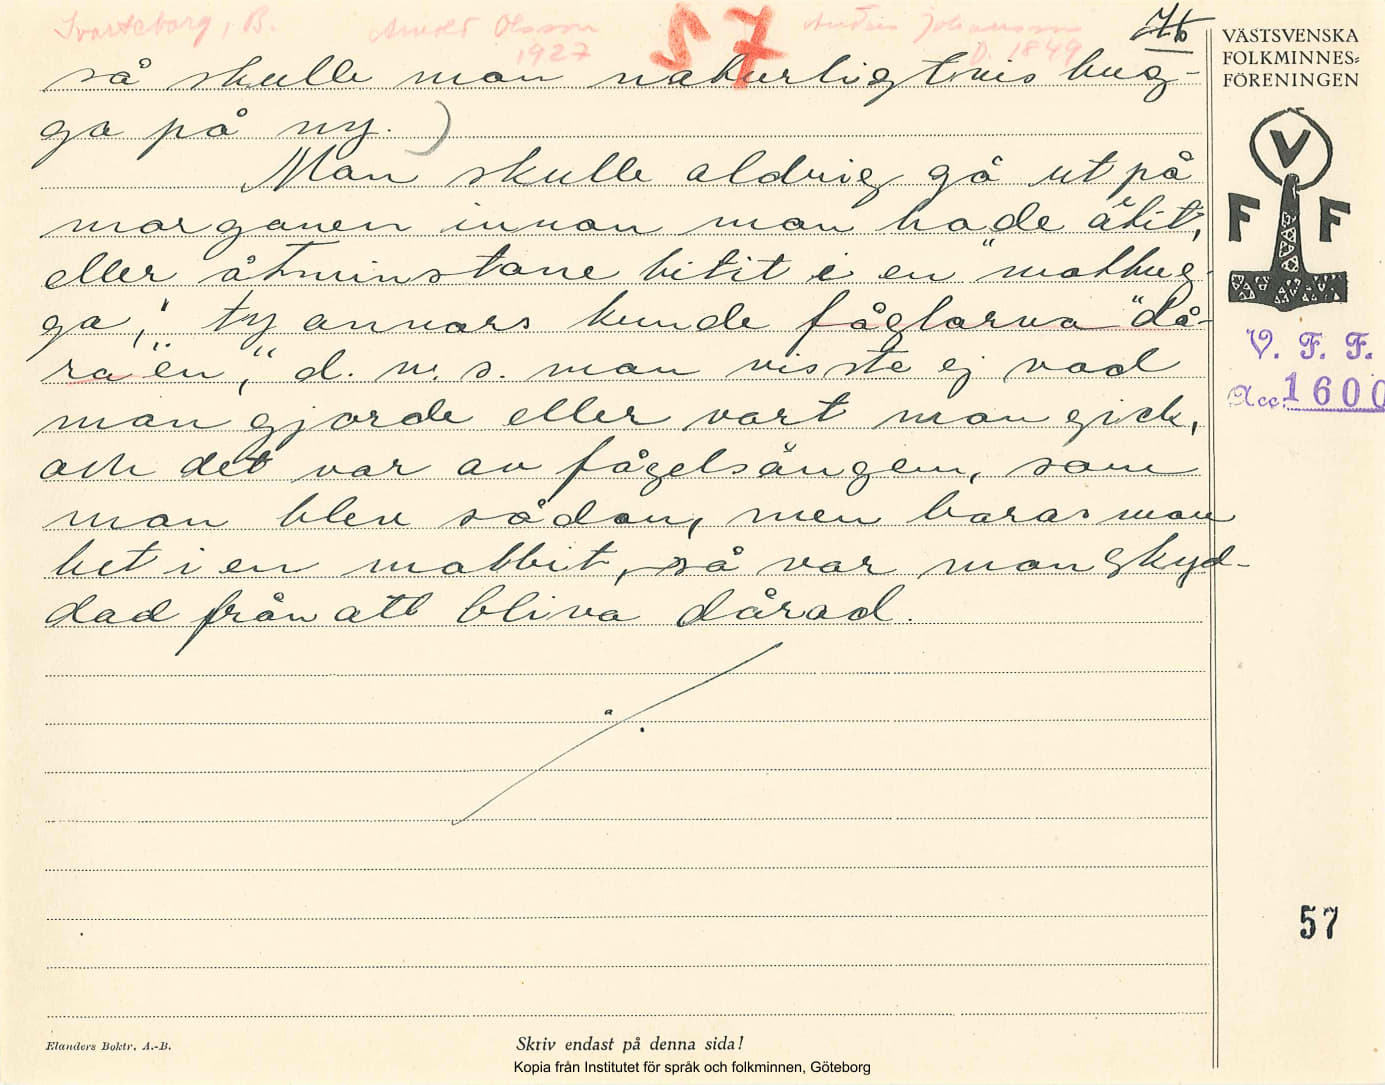 Svarteborg, B.
Arnold Olsson
1927
57
Andrés Johansson
D. 1849
76
så skulle man naturligtvis hug-
ga på ny.)
Man skulle aldrig gå ut på
morgonen innan man hade ätit,
eller åtminstone bitit i en "matbug-
ga," ty annars kunde fåglarna "då-
ra en," d. v. s. man visste ej vad
man gjorde eller vart man gick,
och det var av fågelsången, som
man blev sådan, men bara man
bet i en matbit, så var man skyd-
dad från att bliva dårad.
VÄSTSVENSKA
FOLKMINNES-
FÖRENINGEN
V
F F
V. F. F.
Acc. 1600
57
Elanders Boktr. A.-B.
Skriv endast på denna sida!
Kopia från Institutet för språk och folkminnen, Göteborg